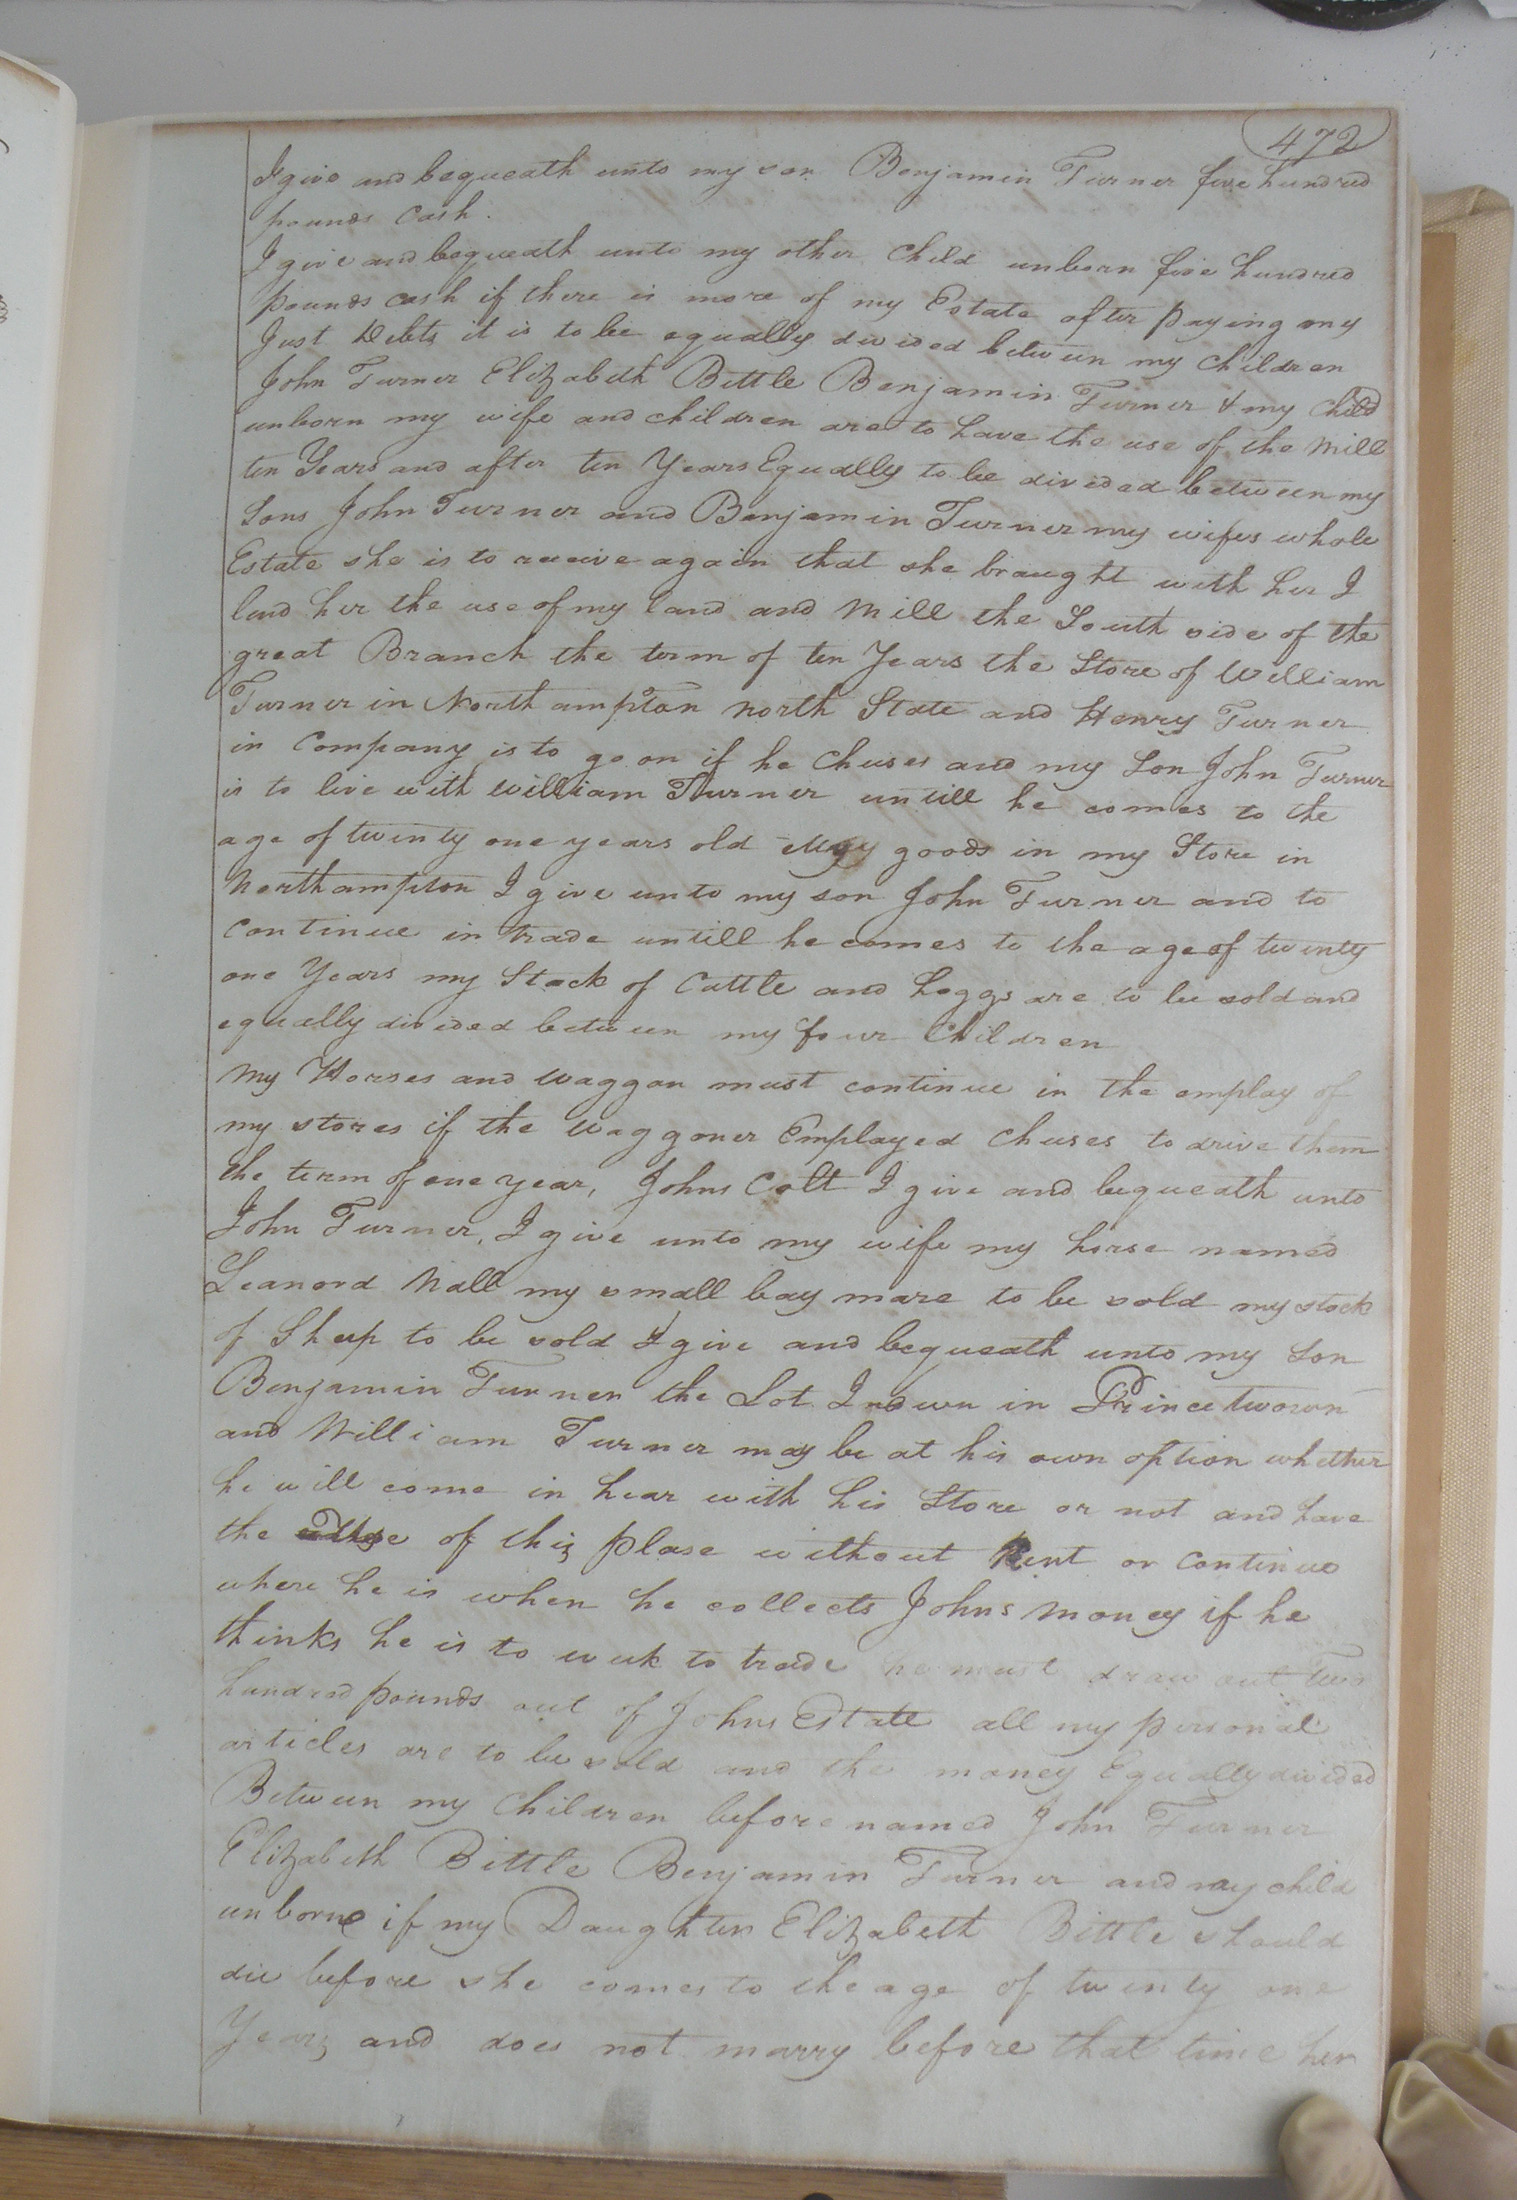 472
I give and bequeath unto my son Benjamin Turner five hundred
pounds Cash.
I give and bequeath unto my other Child unborn five hundred
pounds cash if there is more of my Estate after paying my
Just Debts it is to be equally divided between my Children
John Turner Elizabeth Bittle Benjamin Turner & my Child
unborn my wife and children are to have the use of the Mill
ten Years and after ten Years Equally to be divided between my
Sons John Turner and Benjamin Turner my wifes whole
Estate she is to receive again that she braught with her I
lend her the use of my land and Mill the South side of the
great Branch the term of ten Years the Store of William
Turner in Northampton North State and Henry Turner
in Company is to go on if he Chuses and my Son John Turner
is to live with William Turner untill he comes to the
age of twenty one years old My goods in my Store in
Northampton I give unto my son John Turner and to
Continue in trade untill he comes to the age of twenty
one Years my Stock of Cattle and hoggs are to be sold and
equally divided between my four Children
My Horses and waggon must continue in the employ of
my stores if the waggoner Employed chuses to drive them
the term of one year, Johns Colt I give and bequeath unto
John Turner, I give unto my wife my horse named
Leanord Nall my small bay mare to be sold my stock
of Sheep to be sold I give and bequeath unto my Son
Benjamin Turner the Lot I now own in Princetwown
and William Turner may be at his own option whether
he will come in hear with his Store or not and have
the use of this plase without Rent or continue
where he is when he collects Johns money if he
thinks he is to week to trade he must draw out Two
hundred pounds out of Johns Estate all my personal
articles are to be sold and the money Equally divided
Between my Children before named John Turner
Elizabeth Bittle Benjamin Turner and my child
unborne if my Daughter Elizabeth Bittle should
die before she comes to the age of twenty one
Years and does not marry before that time her